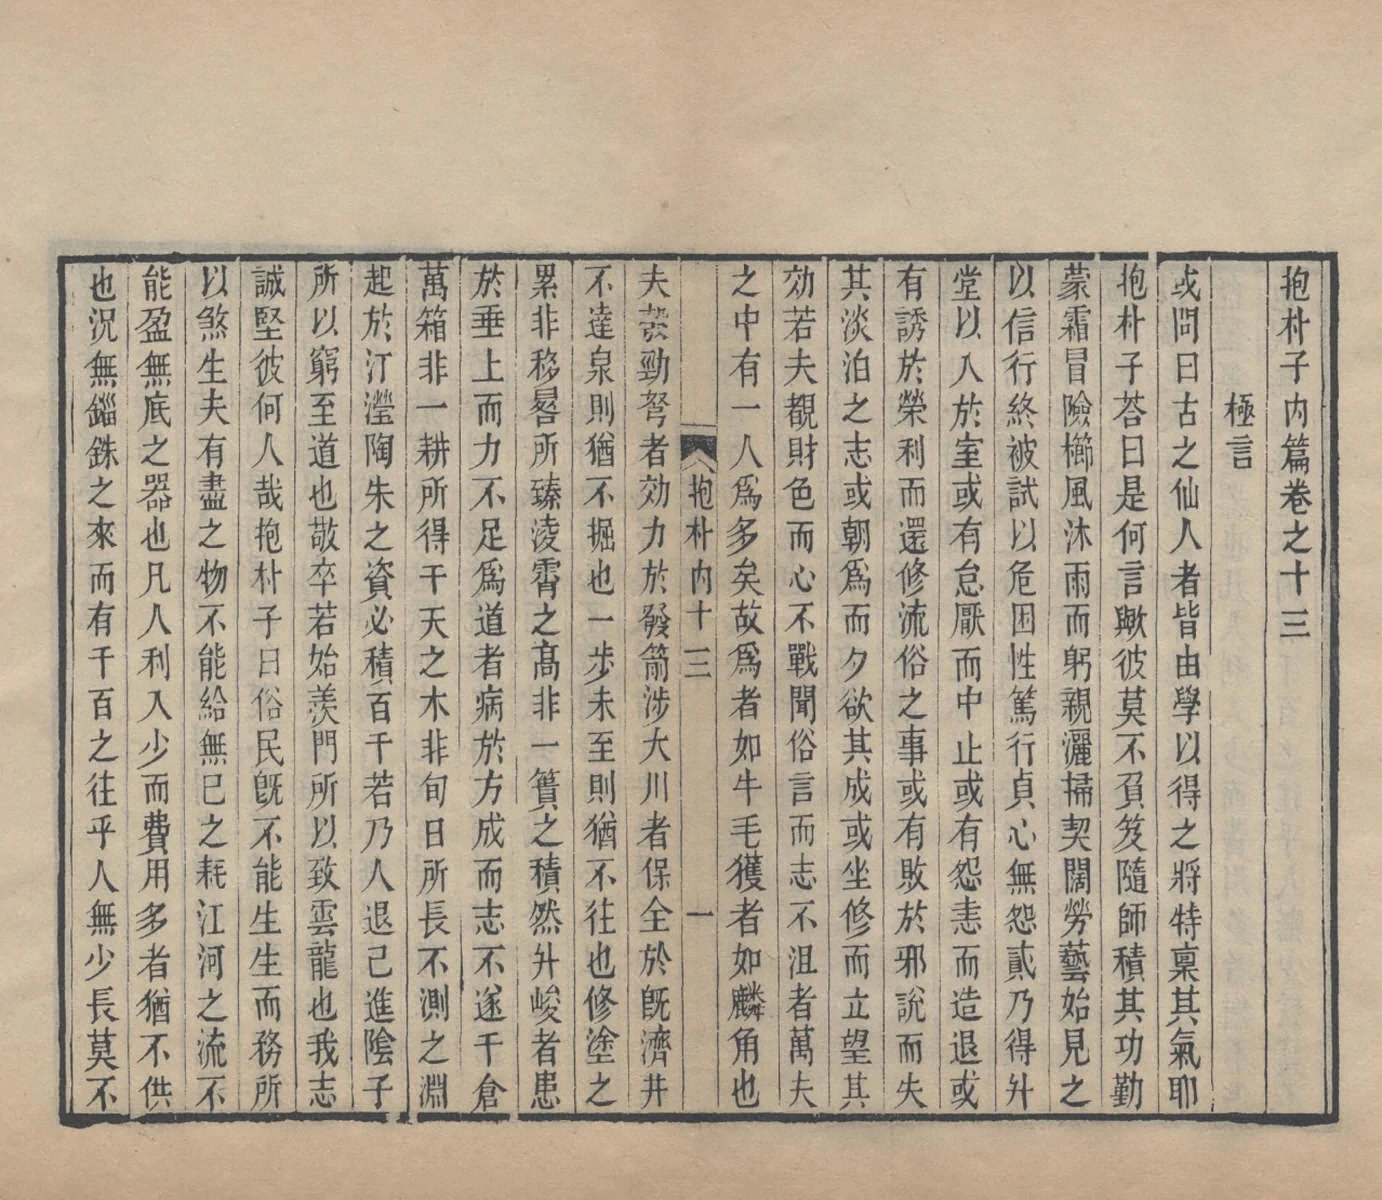 抱朴子内篇卷之十三
極言
或問曰古之仙人者皆由學以得之將特稟其氣耶
抱朴子荅曰是何言歟彼莫不負笈隨師積其功勤
蒙霜冒險櫛風沐雨而躬親灑掃契闊勞藝始見之
以信行終被試以危困性篤行貞心無怨貳乃得升
堂以入於室或有怠厭而中止或有怨恚而造退或
有誘於榮利而還修流俗之事或有敗於邪說而失
其淡泊之志或朝爲而夕欲其成或坐修而立望其
効若夫覩財色而心不戰聞俗言而志不沮者萬夫
之中有一人爲多矣故爲者如牛毛獲者如麟角也
抱朴内十三
一
夫彀勁弩者効力於發箭涉大川者保全於旣濟井
不達泉則猶不掘也一步未至則猶不往也修塗之
累非移晷所臻淩霄之高非一簣之積然升峻者患
於垂上而力不足爲道者病於方成而志不遂千倉
萬箱非一耕所得干天之木非旬日所長不測之淵
起於汀瀅陶朱之資必積百千若乃人退己進陰子
所以窮至道也敬卒若始羨門所以致雲龍也我志
誠堅彼何人哉抱朴子曰俗民旣不能生生而務所
以煞生夫有盡之物不能給無已之耗江河之流不
能盈無底之器也凡人利入少而費用多者猶不供
也況無錙銖之來而有千百之往乎人無少長莫不